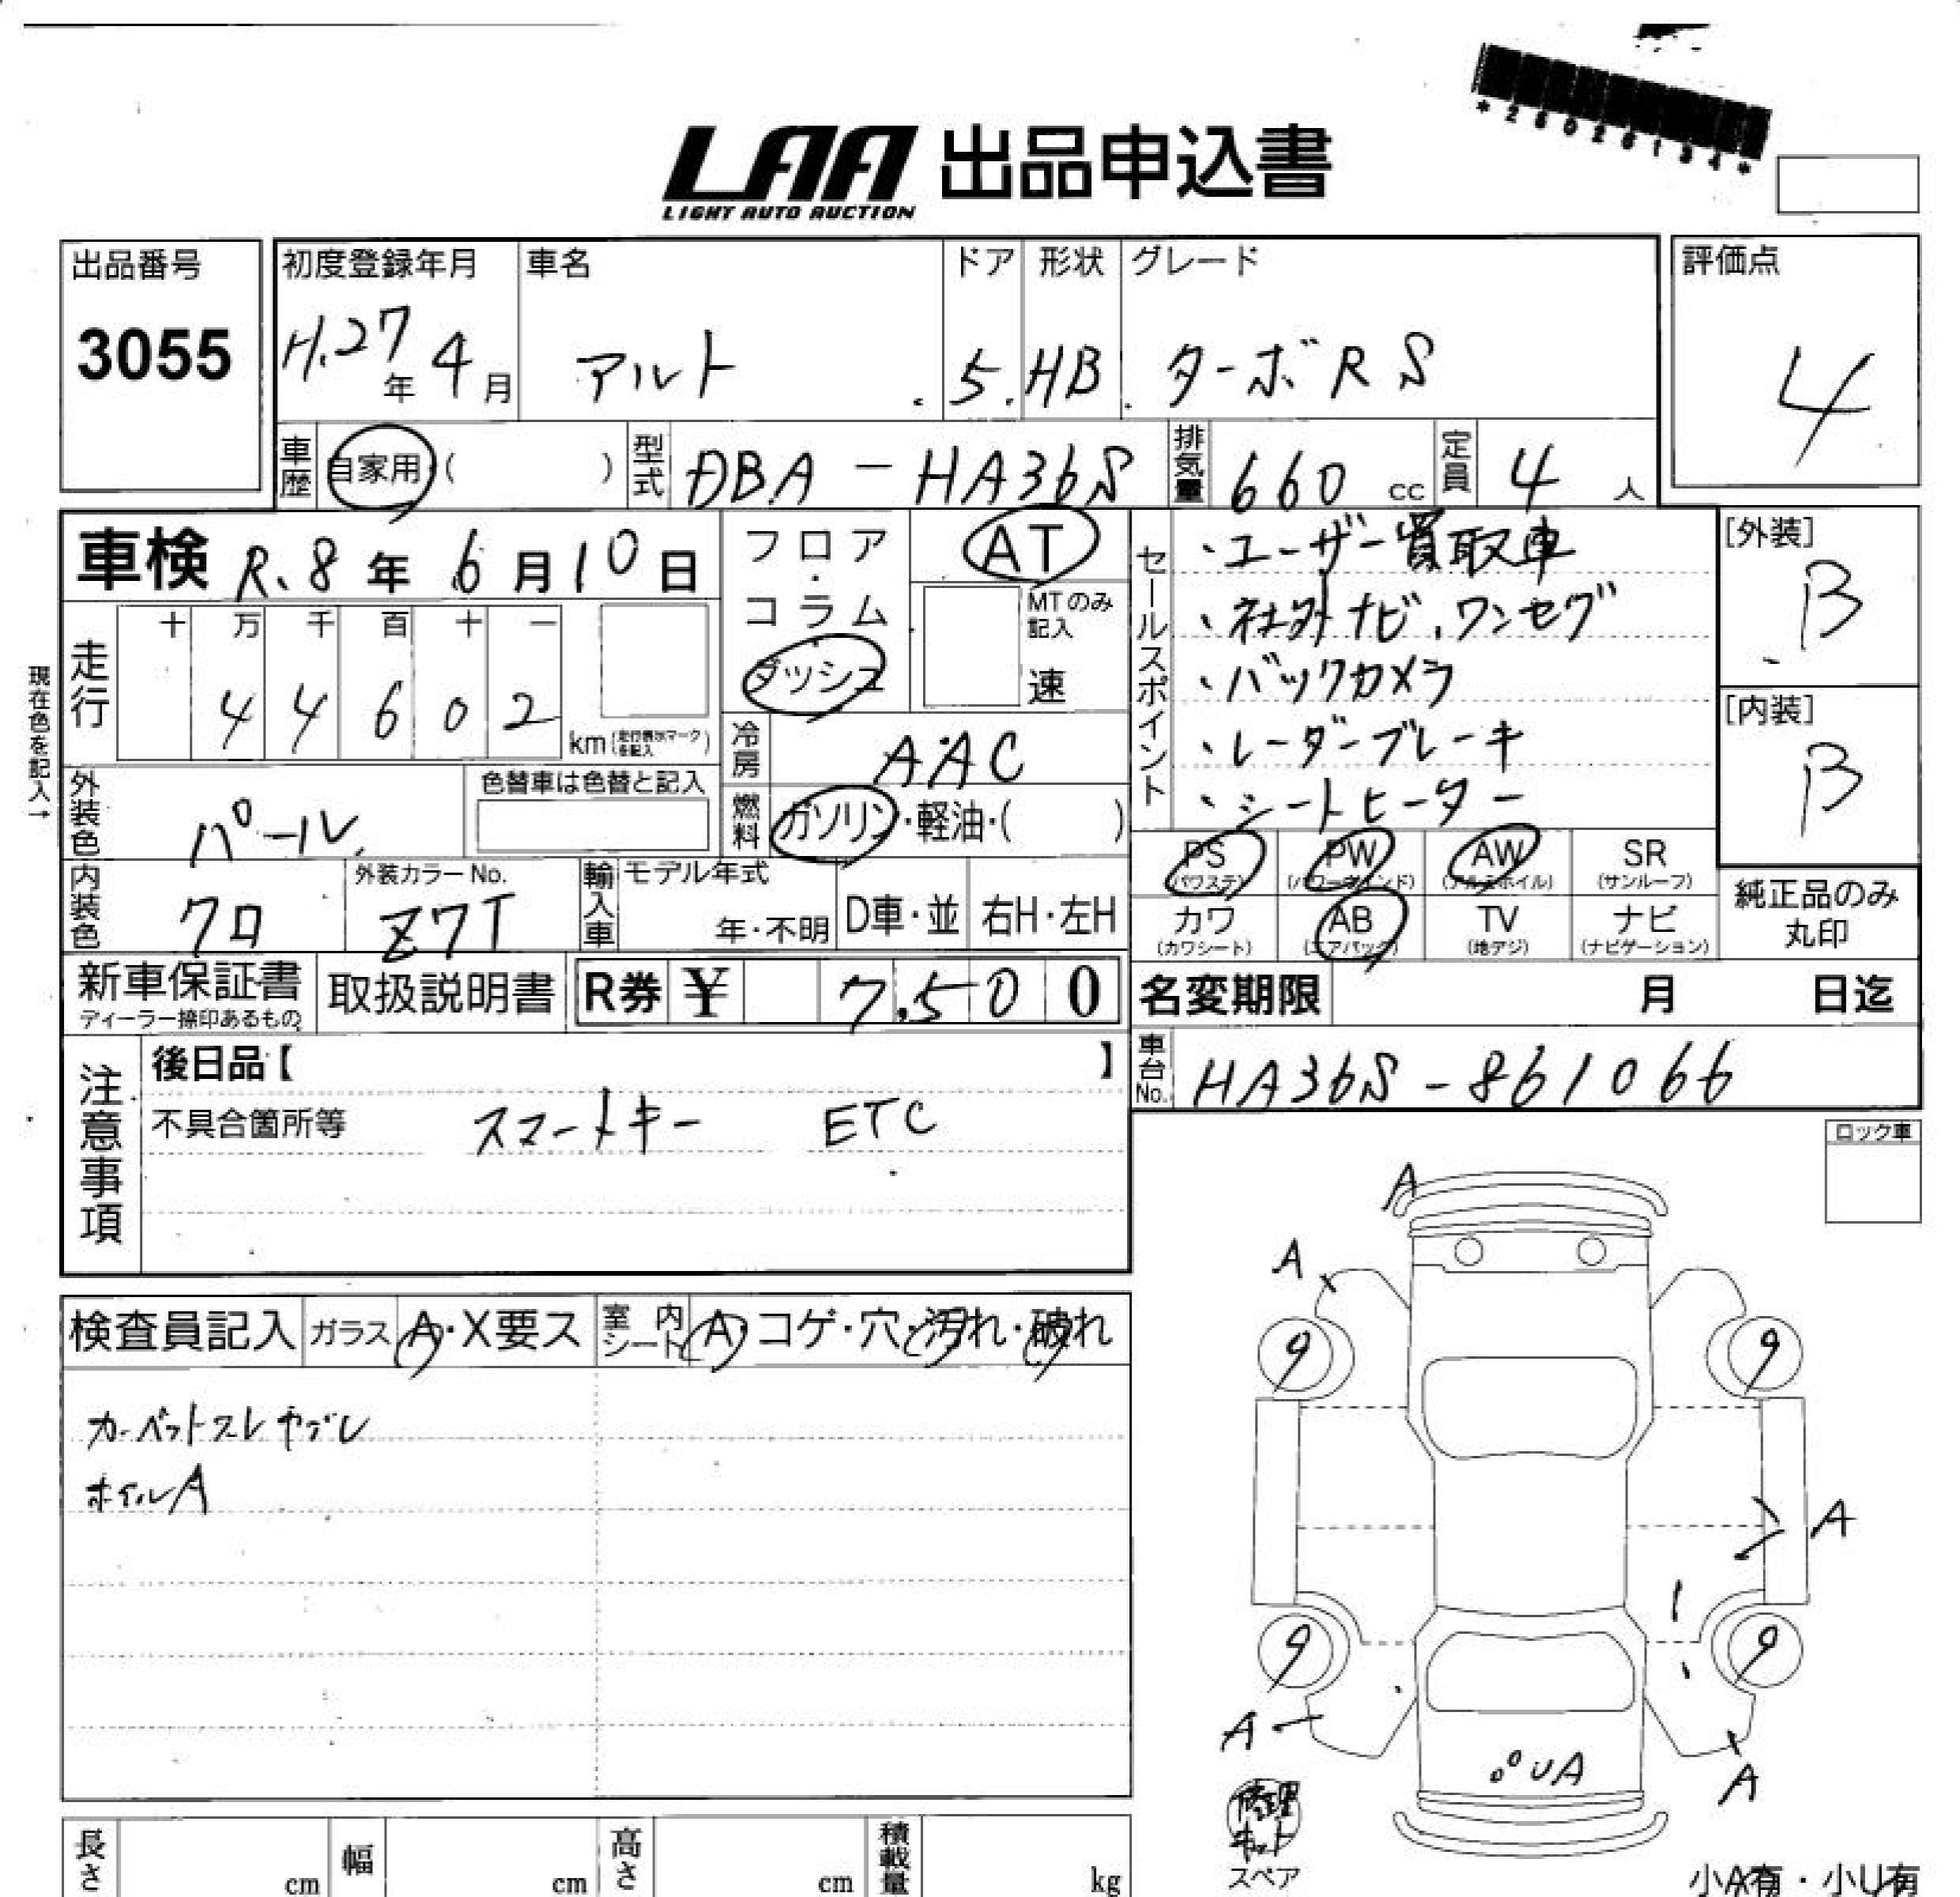 *28026134*
LAA 出品申込書
LIGHT AUTO AUCTION
出品番号 初度登録年月 車名 ドア 形状 グレード 評価点
3055 H.27年 4月 アルト 5 HB ターボRS 4
車歴 自家用 ( ) 型式 DBA-HA36S 排気量 660 cc 定員 4 人
車検 R.8年 6月10日 フロア・コラム・ダッシュ AT
MTのみ記入 速
セールスポイント
・ユーザー買取車
・社外ナビ、ワンセグ
・バックカメラ
・レーダーブレーキ
・シートヒーター
[外装] B
[内装] B
現在色を記入→
走行 十 万 千 百 十 一
4 4 6 0 2 km(走行表示マークを記入)
冷房 AAC
外装色 パール 色替車は色替と記入
燃料 ガソリン・軽油・( )
内装色 クロ 外装カラーNo. Z7T
輸入車 モデル年式 年・不明 D車・並 右H・左H
PS (パワステ) PW (パワーウィンド) AW (アルミホイル) SR (サンルーフ)
カワ (カワシート) AB (エアバック) TV (地デジ) ナビ (ナビゲーション)
純正品のみ丸印
新車保証書 ディーラー捺印あるもの 取扱説明書 R券 ¥ 7,500
名変期限 月 日迄
注意事項 後日品【 】
車台No. HA36S-861066
不具合箇所等 スマートキー ETC
ロック車
検査員記入 ガラス A・X要ス 室内シート A・コゲ・穴・汚れ・破れ
カーペットスレヤブレ
ホイルA
A
A
9 9
A
9 9
A
UA
A
修理キット
スペア
小A有・小U有
長さ cm 幅 cm 高さ cm 積載量 kg